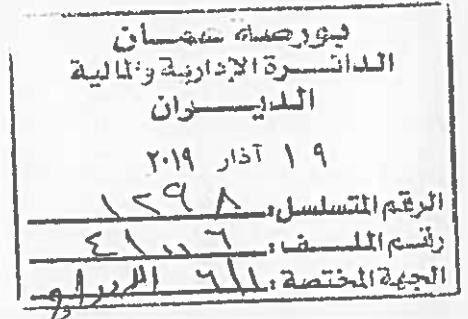 بورصة عمان
الدائرة الإدارية والمالية
الديوان
١٩ آذار ٢٠١٩
الرقم المتسلسل: ١٢٩٨
رقم الملف:
الجهة المختصة: